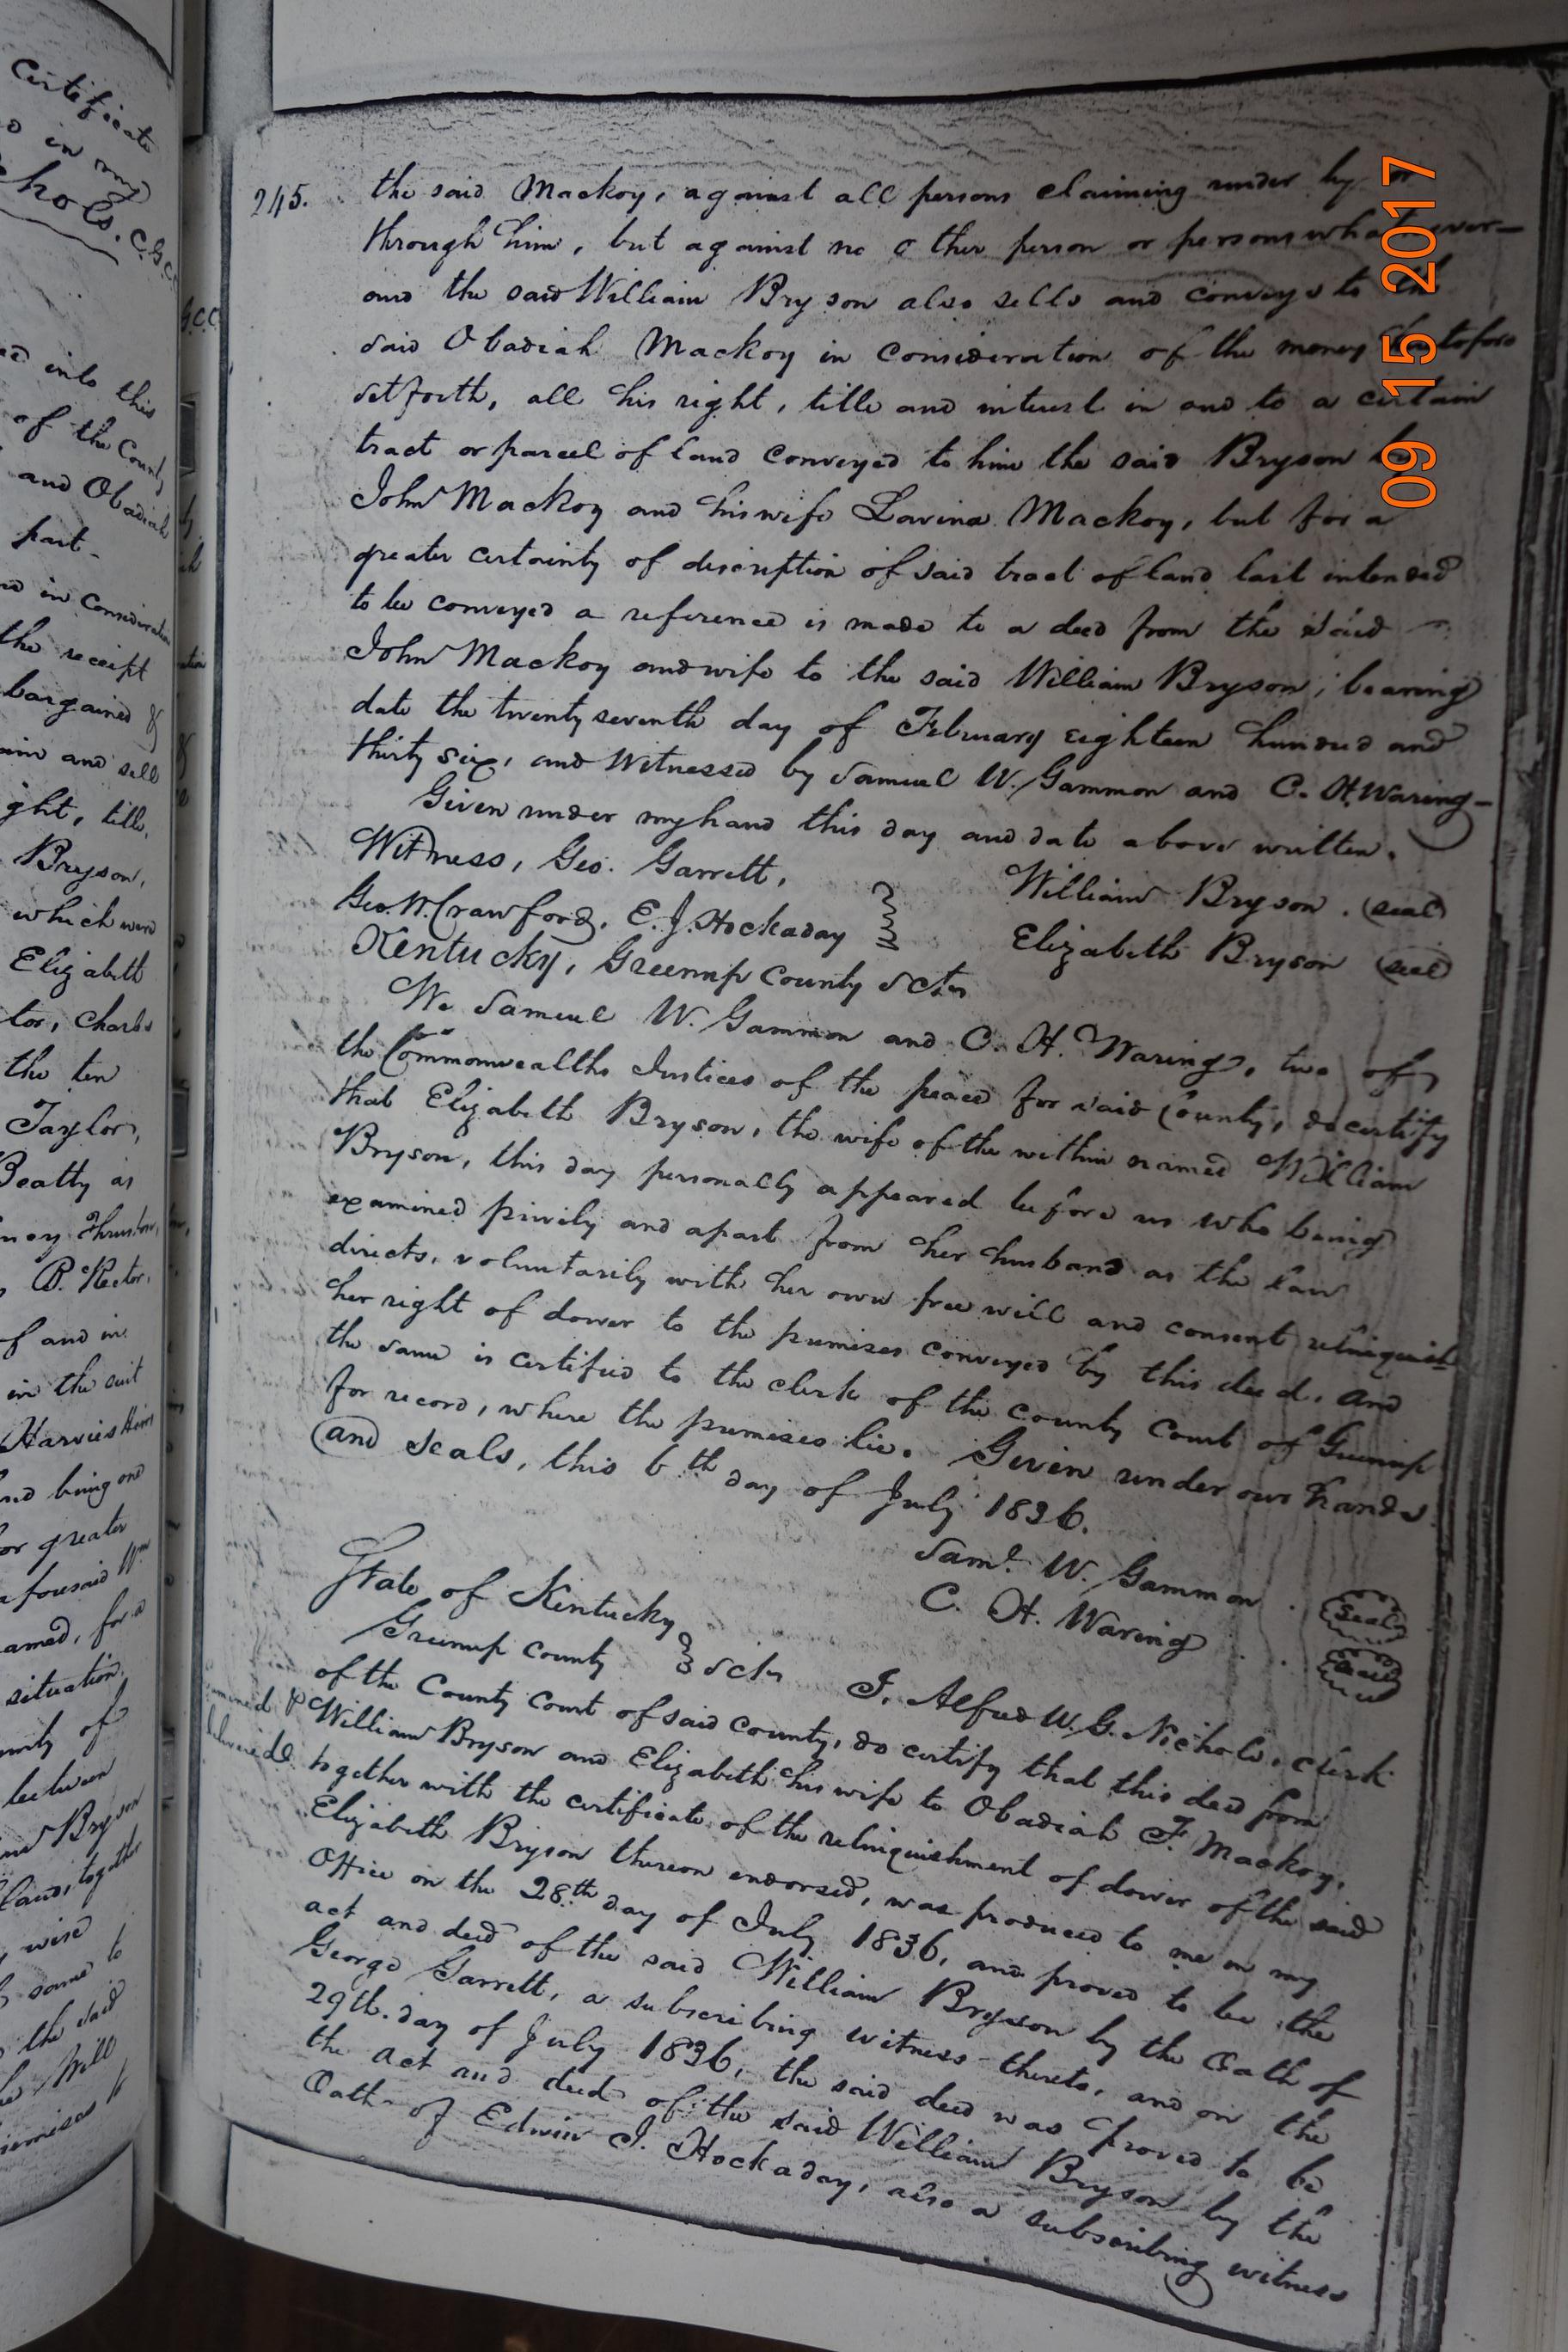 Certificate
in my
hols. C.G.C.
G.C.C.
into this
of the County
and Obadiah
part -
in Consideration
the receipt
bargained &
and sell
ght, title,
Bryson,
which were
Elizabeth
tor, Charles
the ten
Taylor,
Beatty as
B. Rector,
of and in
in the suit
Harvies Heirs
being one
or greater
aforesaid Wm
amed, for a
situation
between
Bryson
land, together
wise
same to
the said
Will
premises to
245.
the said Mackoy, against all persons claiming under by or
through him, but against no other person or persons whatsoever -
and the said William Bryson also sells and conveys to the
said Obadiah Mackoy in consideration of the money heretofore
set forth, all his right, title and interest in and to a certain
tract or parcel of land conveyed to him the said Bryson by
John Mackoy and his wife Lavina Mackoy, but for a
greater certainty of discription of said tract of land last intended
to be conveyed a reference is made to a deed from the said
John Mackoy and wife to the said William Bryson; bearing
date the twenty seventh day of February eighteen hundred and
thirty six, and Witnessed by Samuel W. Gammon and C. H. Waring -
Given under my hand this day and date above written.
Witness, Geo. Garrett,
Geo. W. Crawford, E. J. Hockaday
William Bryson. (seal)
Elizabeth Bryson (seal)
Kentucky, Greenup County Sctn
We Samuel W. Gammon and C. H. Waring, two of
the Commonwealths Justices of the peace for said County, do certify
that Elizabeth Bryson, the wife of the within named William
Bryson, this day personally appeared before us who being
examined privily and apart from her husband as the law
directs, voluntarily with her own free will and consent relinquish
her right of dower to the premises conveyed by this deed. And
the same is certified to the clerk of the county Court of Greenup
for record, where the premises lie. Given under our hands
and seals, this 6th day of July 1836.
Saml. W. Gammon. (Seal)
C. H. Waring ... (Seal)
State of Kentucky
Greenup County } Sctn I, Alfred W. G. Nichols, clerk
of the County Court of said County, do certify that this deed from
William Bryson and Elizabeth his wife to Obadiah F. Mackoy,
together with the certificate of the relinquishment of dower of the said
Elizabeth Bryson thereon endorsed, was produced to me in my
Office on the 28th day of July 1836, and proved to be the
act and deed of the said William Bryson by the Oath of
George Garrett, a subscribing witness thereto, and on the
29th. day of July 1836, the said deed was proved to be
the act and deed of the said William Bryson by the
Oath of Edwin J. Hockaday, also a subscribing witness
09 15 2017